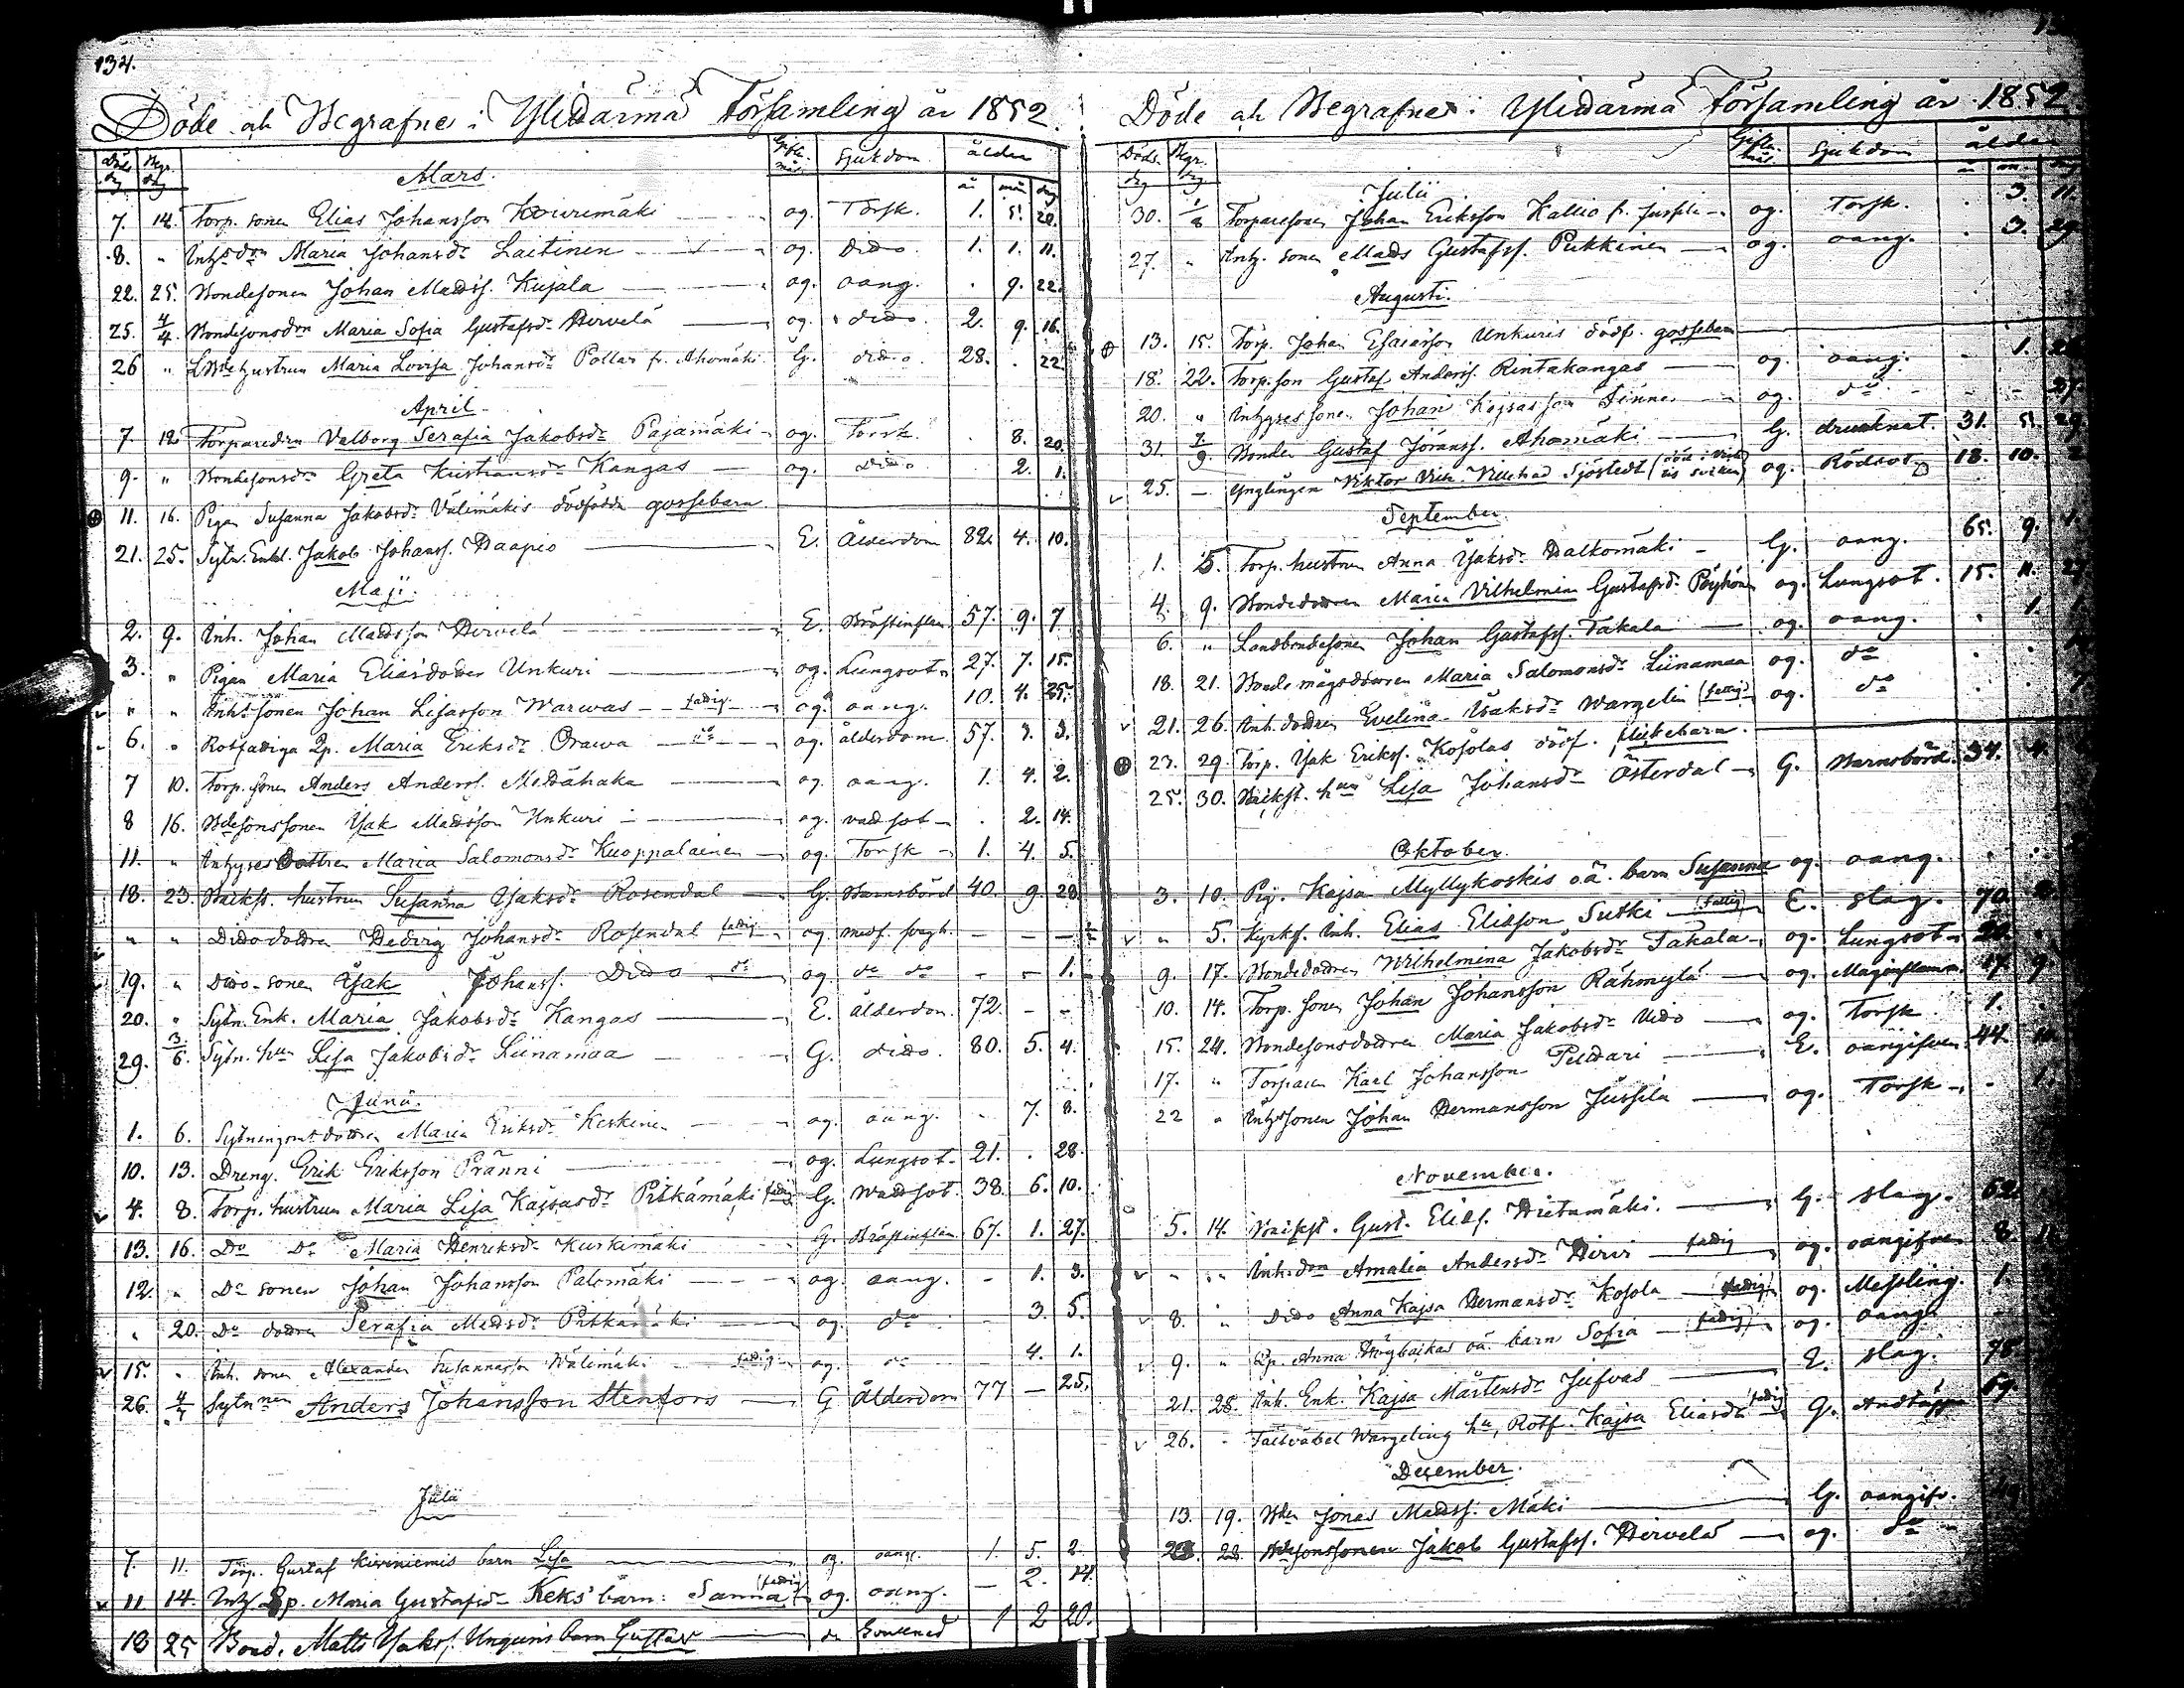 134.
Döde och Begrafne i Ylihärmä Församling år 1852
Döds dag Begr. dag Gifte mål Sjukdom ålder
år mån dag
Mars.
7. 14. Torp. sonen Elias Johansson Kouremäki og. Torsk. 1. 5. 20.
8. " Inhs drn Maria Johansdr Laitinen og. dido 1. 1. 11.
22. 25. Bondesonen Johan Madsf. Kujala og. oang. . 9. 22.
25. 4/4. Bondesonsdrn Maria Sofia Gustafsdr Hervelä og. dido. 2. 9. 16.
26 " hustrun Maria Lovisa Johansdr Pollar fr. Ahomäki G. dido. 28. . 22.
April.
7. 12. Torparedrn Valborg Serafia Jakobsdr Pajamäki og. Torsk. . 8. 20.
9. " Bondesonsdr Greta Kristiansdr Kangas og. dido . 2. 1.
11. 16. Pigan Susanna Jakobsdr Välimäkis dödfödda gossebarn
21. 25. Sytn. Enkl. Jakob Johansf. Haapio E. Ålderdom 82. 4. 10.
Maji.
2. 9. Inh. Johan Madsson Hirvelä E. Bröstinflam. 57. 9. 7
3. " Pigan Maria Eliasdotter Unkuri og. Lungsot 27. 7. 15.
" " Inhs sonen Johan Lisasson Warwas fattig og. oang. 10. 4. 25.
6. " Rotfattiga Qp. Maria Eriksdr Orawa do og. ålderdom. 57. 3. 3.
7 10. Torp. sonen Anders Andersf. Mettähaka og. oang. 1. 4. 2.
8 16. Bdesonssonen Isak Madsson Unkuri og. vattsot . 2. 14.
11. " Inhyses Dottren Maria Salomonsdr Kuoppalainen og. Torsk 1. 4. 5.
18. 23. Backst. hustrun Susanna Isaksdr Rosendal G. Barnsbörd 40. 9. 28
" " Dido dottren Hedvig Johansdr Rosendal fattig og. medf. svagh. - - -
19. " Dido sonen Isak Johansf. Dido do og. do do - - 1.
20. " Sytn. Enk. Maria Jakobsdr Kangas E. ålderdom. 72. - -
29. 3/6. Sytn. hu Lisa Jakobsdr Liinamaa G. dido. 80. 5. 4.
Junii.
1. 6. Sytningsm. dottren Maria Eriksdr Keskinen og. oang. - 7. 8.
10. 13. Dreng. Erik Eriksson Pränni og. Lungsot. 21. . 28.
4. 8. Torp. hustrun Maria Lisa Kajsasdr Pitkämäki fattig G. Wattsot. 38. 6. 10.
13. 16. Do Do Maria Henriksdr Kuskimäki G. Bröstinflam 67. 1. 27.
12. " Do sonen Johan Johansson Palomäki og. oang. - 1. 3.
" 20. Do dottren Serafia Madsdr Pitkämäki og. do - 3. 5.
15. " Inh. sonen Alexander Susannasson Wälimäki fattig og. do - 4. 1.
26. 4/7 Sytnnen Anders Johansson Stenfors G Ålderdom 77 - 25.
Julii
7. 11. Torp. Gustaf Kiviniemis barn Lisa og. oang. 1. 5. 2.
11. 14. Inh. Qp. Maria Gustafsdr Keks barn: Sanna (fattig) og. oang. - 2. 24.
18 25 Bond. Matts Isaksf. Unguris barn Gustav 1 2 20.
Döde och Begrafne i Ylihärmä församling år 1852
Döds dag Begr. dag Gifte mål Sjukdom ålder
Julii
30. 1/8 Torparesonen Johan Eriksson Kallio fr. Jussila og. Torsk. . 3. 11.
27. " Inh. sonen Mads Gustafsf. Pukkinen og. oang. . 3. 29.
Augusti.
13. 15. Torp. Johan Esaiasson Unkuris dödf. gossebarn
18. 22. Torp. son Gustaf Andersf. Rintakangas og. oang. - 1.
20. " Inhyses sonen Johan Kajsasson Finne og. do - - 27.
31. 7/9. Bonden Gustaf Göransf. Ahomäki G. drunknat. 31. 5. 29.
25. - Ynglingen Viktor Sjöstedt og. Rödsot 18. 10.
September.
1. 5. Torp. hustrun Anna Isaksdr Haltomäki G. oang. 65. 9. 1.
4. 9. Bondedottren Maria Vilhelmina Gustafsdr Pöyhön og. Lungsot. 15. 11.
6. " Landbondesonen Johan Gustafsf. Takala og. oang. . 1.
18. 21. Bonde mågsdottren Maria Salomonsdr Liinamaa og. do
21. 26. Inh. dottren Evelina Isaksdr Wargelin (fattig) og. do
23. 29. Torp. Isak Eriksf. Kosolas dödf. flickebarn.
25. 30. Backst. hun Lisa Johansdr Österdal G. Barnsbörd. 34. 4.
Oktober.
3. 10. Pig. Kajsa Myllykoskis o.ä. barn Susanna og. oang.
" 5. Kyrkf. Inh. Elias Eliasson Sutki (fattig) E. slag. 70
9. 17. Bondedottren Wilhelmina Jakobsdr Takala og. Lungsot 20.
10. 14. Torp. sonen Johan Johansson Rähmylä og. Maginflamm. 17. 9.
15. 24. Bondesonsdottren Maria Jakobsdr Uido og. Torsk. 1.
17. " Torparen Karl Johansson Peldari E. oangifven 44. 10.
22 " Inhs sonen Johan Hermansson Jussila og. Torsk - 1.
November.
5. 14. Backst. Gust. Eliasf. Hietamäki. G. slag. 62.
" " Inh. dn Amalia Andersdr Hirvi fattig og. oangifven 8. 11.
8. " Dido Anna Kajsa Hermansdr Kosola fattig og. Messling. 1.
9. " Qp. Anna Högbackas oä. barn Sofia fattig og. oang.
21. 28. Inh. Enk. Kajsa Mårtensdr Jufvas E. slag. 78
26. " Fältväbel Wargeling hu, Rotf. Kajsa Eliasdr fattig G. Andtäppa 69.
December.
13. 19. Bden Jonas Madsf. Mäki G. oangifv.
28. Bdesonssonen Jakob Gustafsf. Hervelä og. do